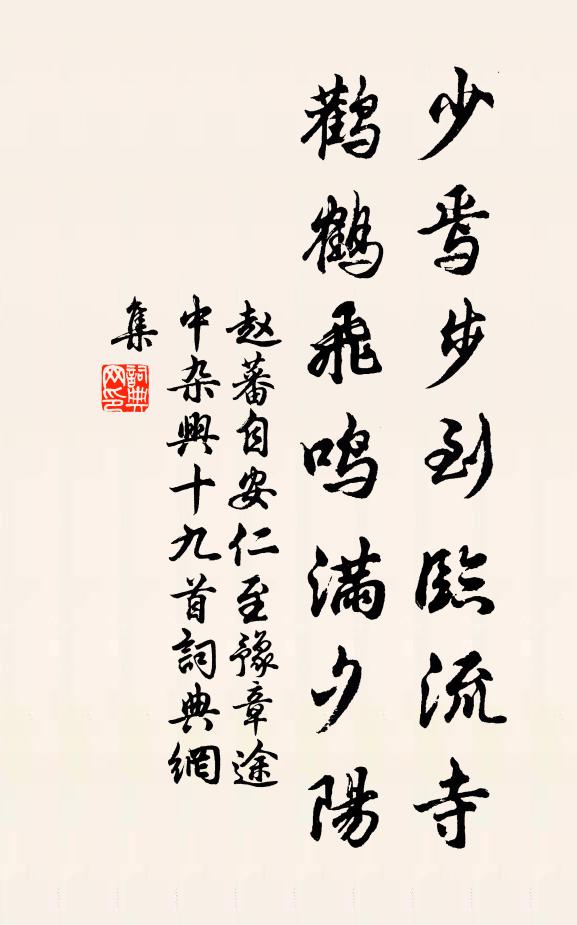 少焉步到臨流寺
鸛鶴飛鳴滿夕陽
赵蕃自安仁至豫章途
中杂興十九首詞典網
集
詞典
网印